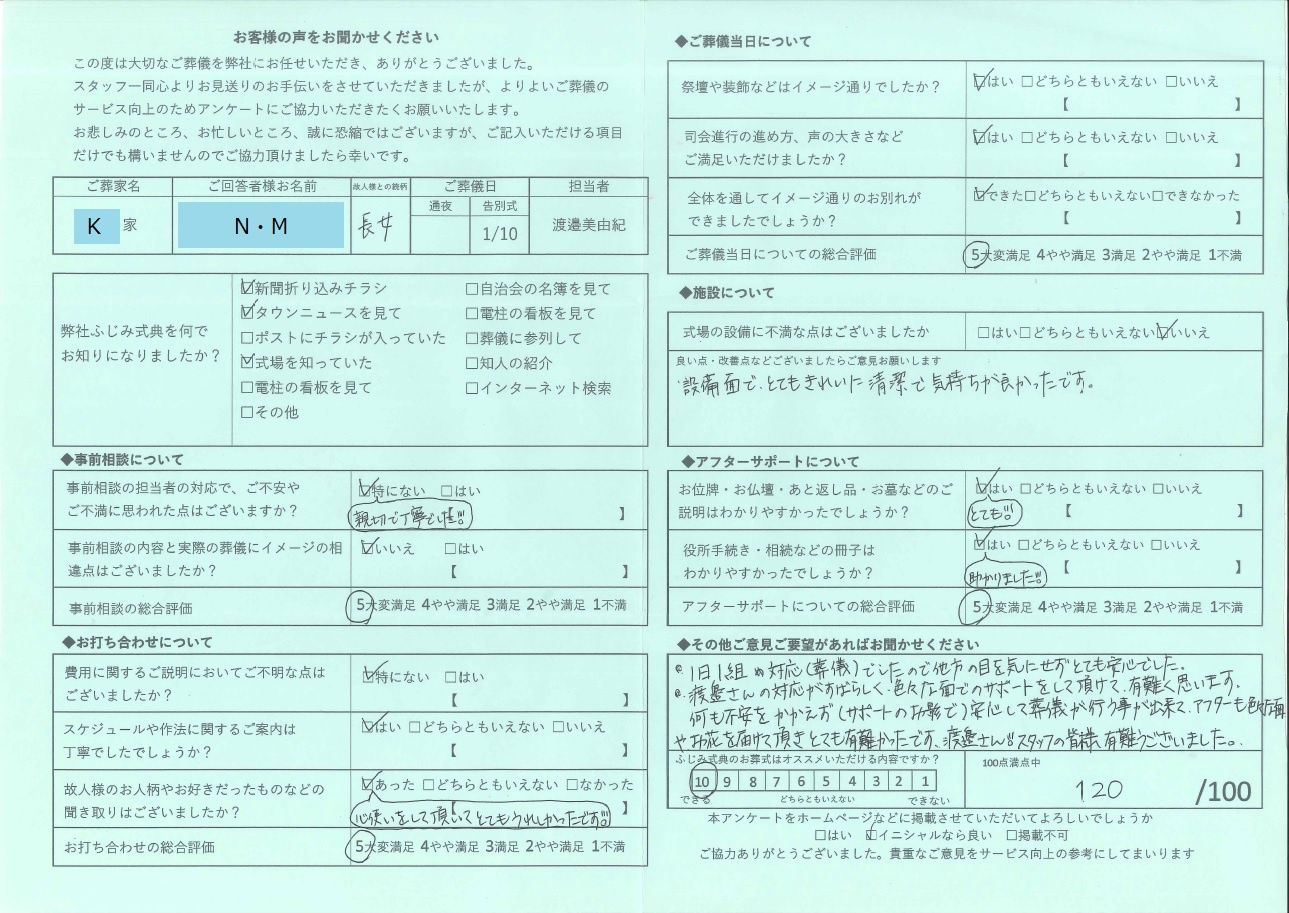 お客様の声をお聞かせください
この度は大切なご葬儀を弊社にお任せいただき、ありがとうございました。
スタッフ一同心よりお見送りのお手伝いをさせていただきましたが、よりよいご葬儀の
サービス向上のためアンケートにご協力いただきたくお願いいたします。
お悲しみのところ、お忙しいところ、誠に恐縮ではございますが、ご記入いただける項目
だけでも構いませんのでご協力頂けましたら幸いです。
ご葬家名 ご回答者様お名前 故人様との続柄 ご葬儀日 担当者
通夜 告別式
K 家 N・M 長女 1/10 渡邉美由紀
弊社ふじみ式典を何で
お知りになりましたか？
☑新聞折り込みチラシ □自治会の名簿を見て
☑タウンニュースを見て □電柱の看板を見て
□ポストにチラシが入っていた □葬儀に参列して
☑式場を知っていた □知人の紹介
□電柱の看板を見て □インターネット検索
□その他
◆事前相談について
事前相談の担当者の対応で、ご不安や
ご不満に思われた点はございますか？
☑特にない □はい
親切で丁寧でした!! 】
事前相談の内容と実際の葬儀にイメージの相
違点はございましたか？
☑いいえ □はい
【 】
事前相談の総合評価 5大変満足 4やや満足 3満足 2やや満足 1不満
◆お打ち合わせについて
費用に関するご説明においてご不明な点は
ございましたか？
☑特にない □はい
【 】
スケジュールや作法に関するご案内は
丁寧でしたでしょうか？
☑はい □どちらともいえない □いいえ
【 】
故人様のお人柄やお好きだったものなどの
聞き取りはございましたか？
☑あった □どちらともいえない □なかった
【 】
心使いをして頂いてとてもうれしかったです!!
お打ち合わせの総合評価 5大変満足 4やや満足 3満足 2やや満足 1不満
◆ご葬儀当日について
祭壇や装飾などはイメージ通りでしたか？
☑はい □どちらともいえない □いいえ
【 】
司会進行の進め方、声の大きさなど
ご満足いただけましたか？
☑はい □どちらともいえない □いいえ
【 】
全体を通してイメージ通りのお別れが
できましたでしょうか？
☑できた□どちらともいえない□できなかった
【 】
ご葬儀当日についての総合評価 5大変満足 4やや満足 3満足 2やや満足 1不満
◆施設について
式場の設備に不満な点はございましたか □はい□どちらともいえない☑いいえ
良い点・改善点などございましたらご意見お願いします
・設備面で、とてもきれいに清潔で気持ちが良かったです。
◆アフターサポートについて
お位牌・お仏壇・あと返し品・お墓などのご
説明はわかりやすかったでしょうか？
☑はい □どちらともいえない □いいえ
とても!! 【 】
役所手続き・相続などの冊子は
わかりやすかったでしょうか？
☑はい □どちらともいえない □いいえ
【 】
助かりました!!
アフターサポートについての総合評価 5大変満足 4やや満足 3満足 2やや満足 1不満
◆その他ご意見ご要望があればお聞かせください
・1日1組の対応(葬儀)でしたので他方の目を気にせずとても安心でした。
・渡邉さんの対応がすばらしく、色々な面でのサポートをして頂けて、有難く思います。
何も不安をかかえず(サポートのお影で)安心して葬儀が行う事が出来て、アフターも色々な面
やお花を届けて頂きとても有難かったです。渡邉さん!!スタッフの皆様、有難うございました。
ふじみ式典のお葬式はオススメいただける内容ですか？
10 9 8 7 6 5 4 3 2 1
できる どちらともいえない できない
100点満点中
120 /100
本アンケートをホームページなどに掲載させていただいてよろしいでしょうか
□はい ☑イニシャルなら良い □掲載不可
ご協力ありがとうございました。貴重なご意見をサービス向上の参考にしてまいります